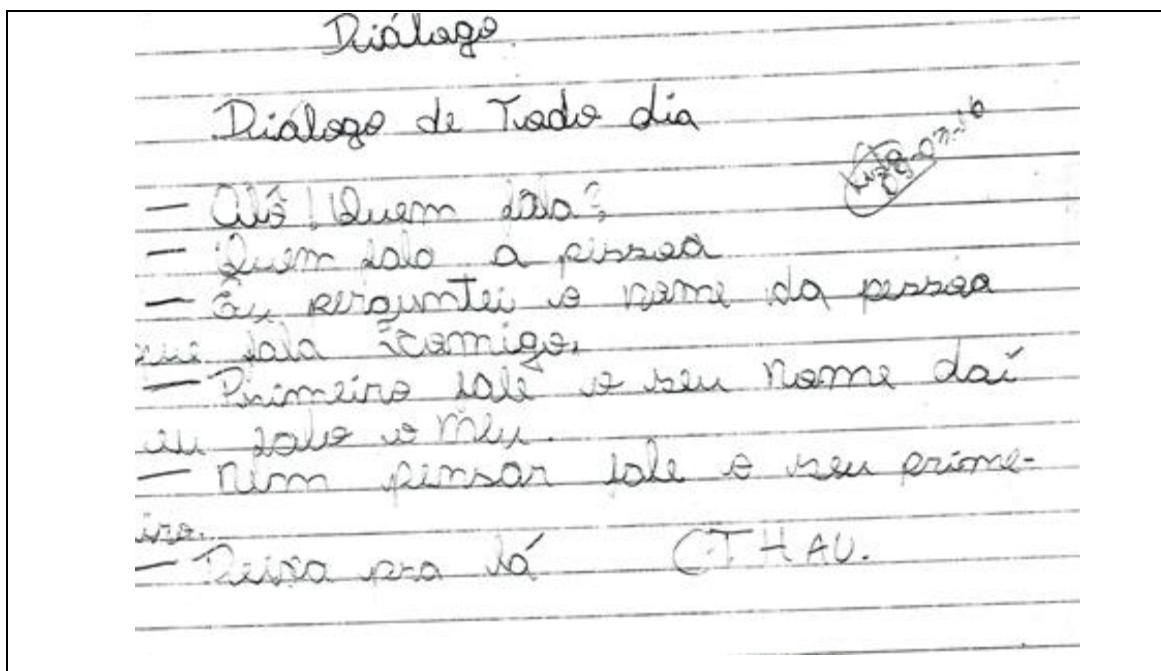 Diálogo
Diálogo de Todo dia
— Alô! Quem fala?
— Quem fala a pessoa
— Eu perguntei o nome da pessoa
que fala comigo.
— Primeiro fale o seu nome daí
eu falo o meu.
— Nem pensar fale o seu prime-
iro.
— Deixa pra lá CTHAU.